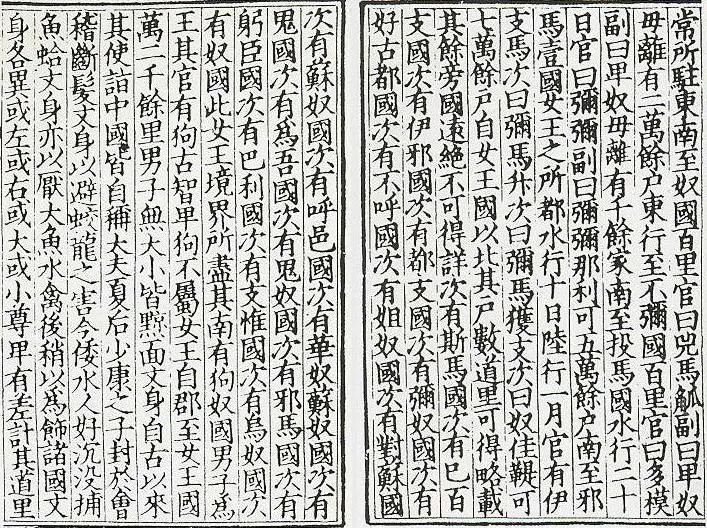 常所駐東南至奴國百里官曰兕馬觚副曰卑奴
毋離有二萬餘户東行至不彌國百里官曰多模
副曰卑奴毋離有千餘家南至投馬國水行二十
日官曰彌彌副曰彌彌那利可五萬餘户南至邪
馬壹國女王之所都水行十日陸行一月官有伊
支馬次曰彌馬升次曰彌馬獲支次曰奴佳鞮可
七萬餘户自女王國以北其户數道里可得略載
其餘旁國遠絶不可得詳次有斯馬國次有巳百
支國次有伊邪國次有都支國次有彌奴國次有
好古都國次有不呼國次有姐奴國次有對蘇國
次有蘇奴國次有呼邑國次有華奴蘇奴國次有
鬼國次有為吾國次有鬼奴國次有邪馬國次有
躬臣國次有巴利國次有支惟國次有烏奴國次
有奴國此女王境界所盡其南有狗奴國男子為
王其官有狗古智卑狗不屬女王自郡至女王國
萬二千餘里男子無大小皆黥面文身自古以來
其使詣中國皆自稱大夫夏后少康之子封於會
稽斷髮文身以避蛟龍之害今倭水人好沉没捕
魚蛤文身亦以厭大魚水禽後稍以為飾諸國文
身各異或左或右或大或小尊卑有差計其道里